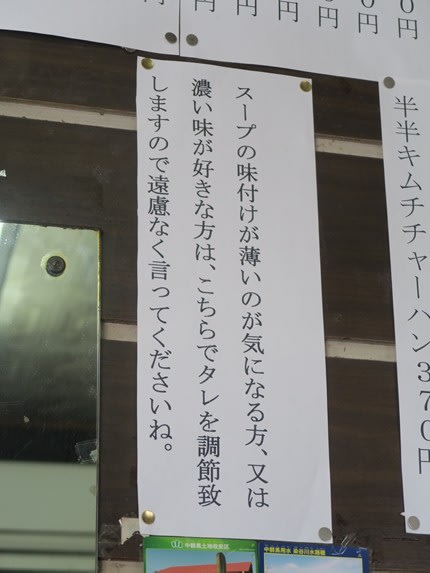 ０円
０円
０円
０円
０円
０円
半半キムチチャーハン３７０円
スープの味付けが薄いのが気になる方、又は
濃い味が好きな方は、こちらでタレを調節致
しますので遠慮なく言ってくださいね。
中勢用水 染谷川水路橋